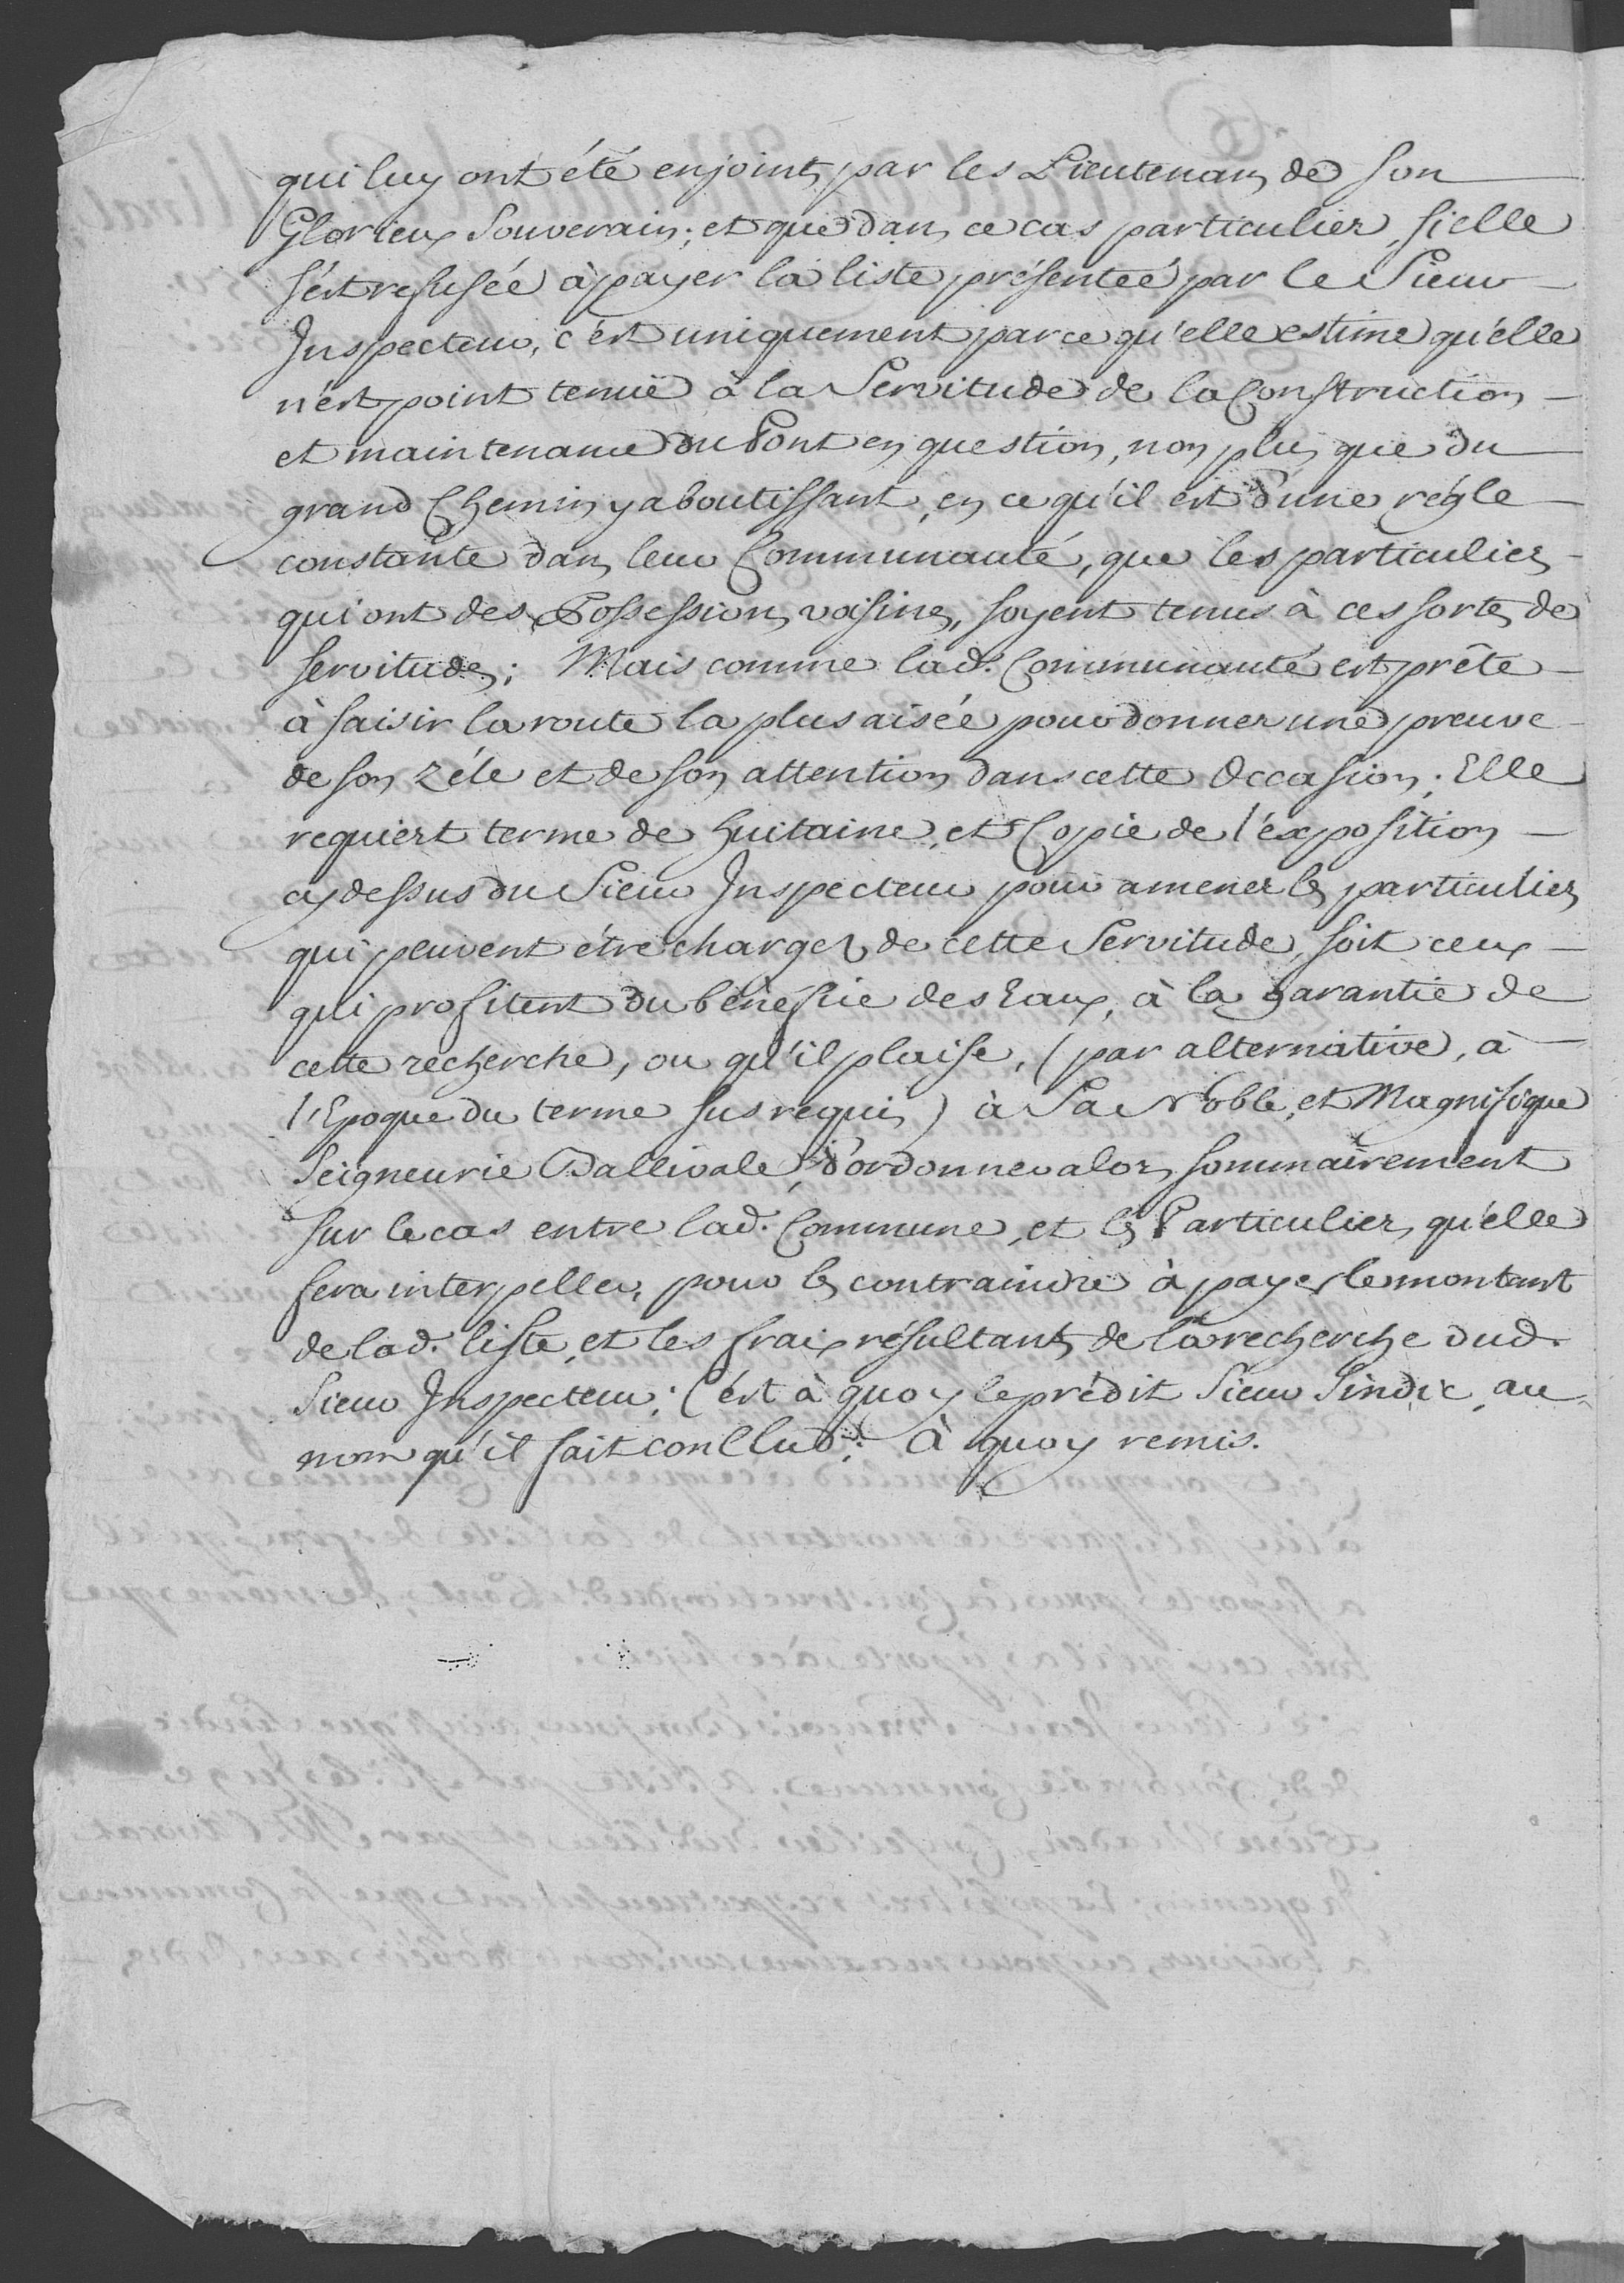 qui luy ont été enjoints par les Lieutenans de Son
Glorieux Souverain; et que dans ce cas particulier, si elle
s'est refusée à payer la liste présenteé par le Sieur
Inspecteur, c'est uniquement parce qu'elle estime qu'elle
n'est point tenuë à la Servitude de la Construction
et maintenance du Pont en question, non plus que du
grand Chemin y aboutissant, en ce qu'il est d'une régle
constante dans leur Communauté, que les particuliers
qui ont des Possessions voisines, soyent tenus à ces sortes de
servitudes; Mais comme lad. Communauté est prête
à saisir la route la plus aisée pour donner une preuve
de son zéle et de son attention dans cette Occasion; Elle
requiert terme de huitaine, et Copie de l'exposition
cy dessus du Sieur Inspecteur pour amener les particuliers
qui peuvent être chargez de cette Servitude, soit ceux
qui profitent du bénéfice des Eaux, à la garantie de
cette recherche, ou qu'il plaise, (par alternative, à
l'Epoque du terme sus requis) à Sa Noble, et Magnifique
Seigneurie Ballivale, d'ordonner alors sommairement
sur le cas entre lad. Commune, et les Particuliers, qu'elle
fera interpeller, pour les contraindre à payer le montant
de lad. liste, et les frais résultants de la recherche dud.
Sieur Inspecteur; C'est à quoy le prédit Sieur Sindic, au
nom qu'il fait conclud; À quoy remis.